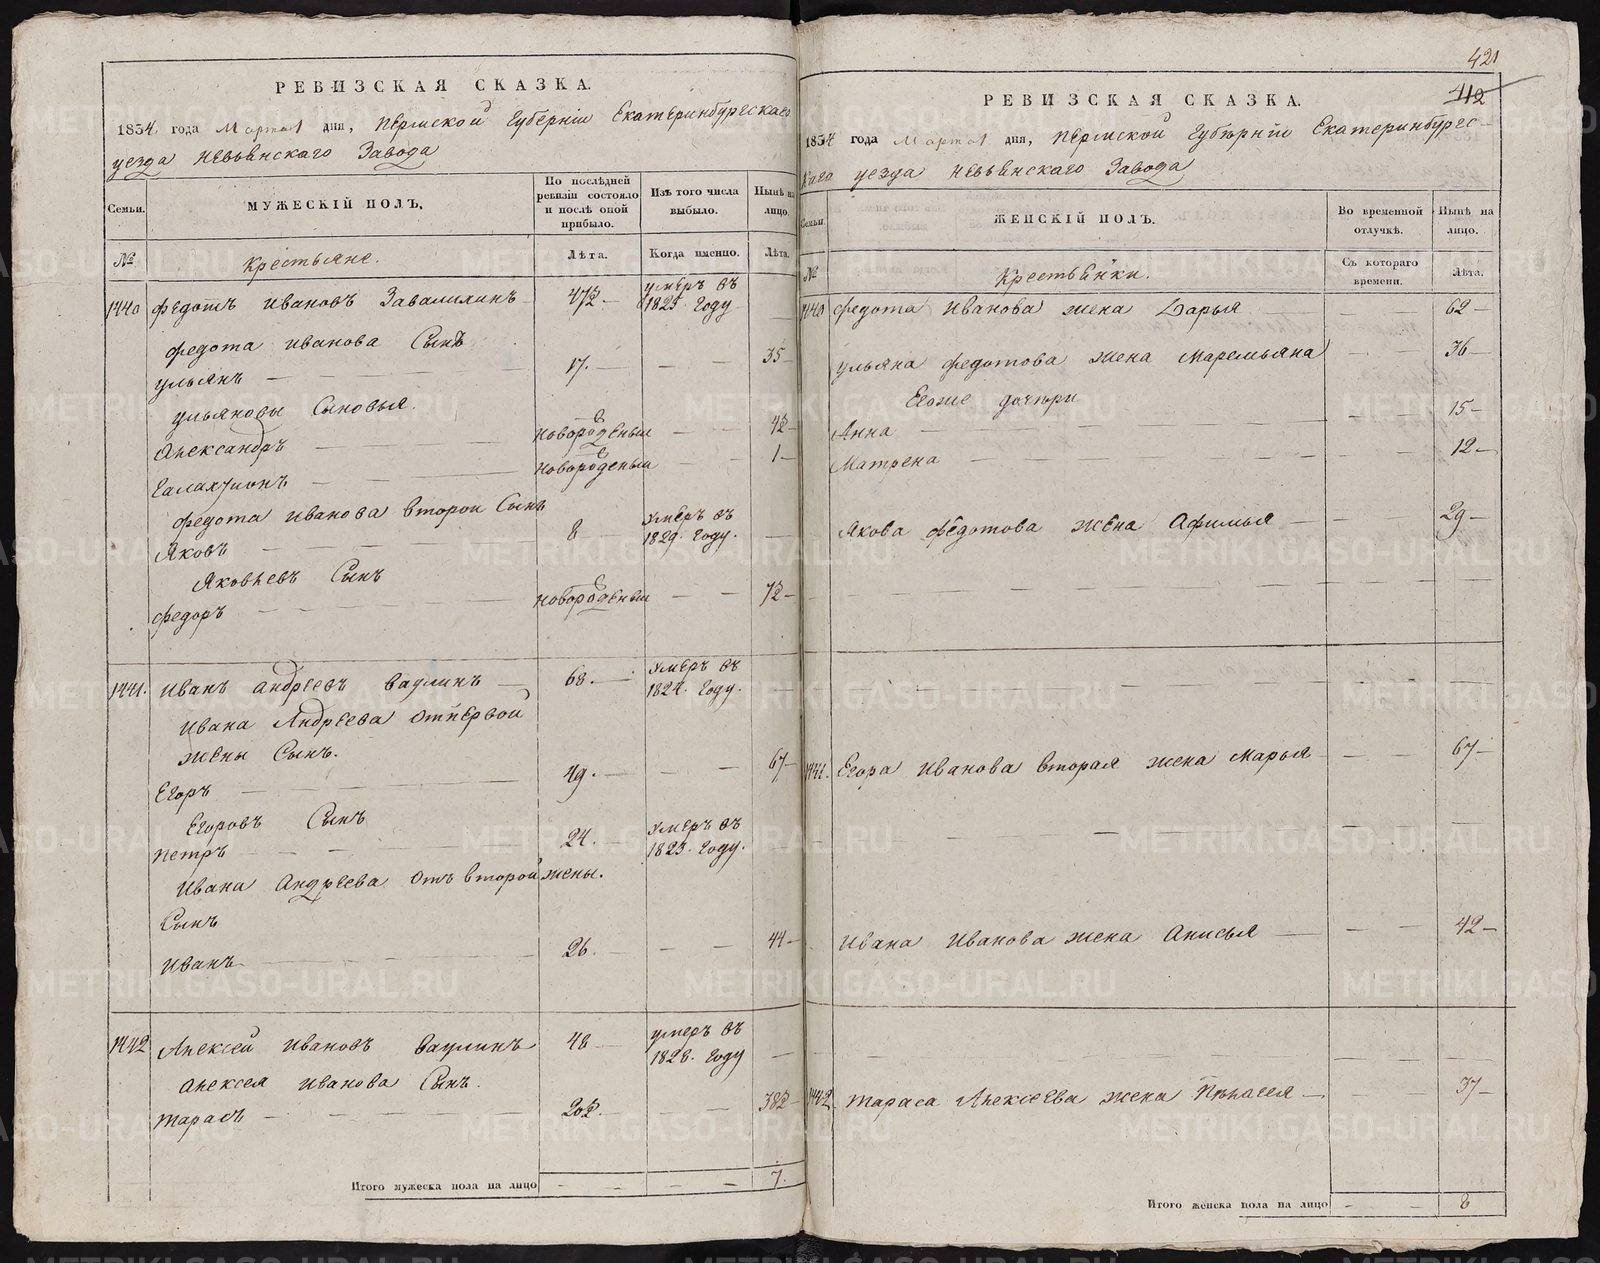 РЕВИЗСКАЯ СКАЗКА.
1834 года Марта 1 дня, Пермской Губернiи Екатеринбургскаго
уезда Невьянскаго Завода
Семьи.
МУЖЕСКIЙ ПОЛЪ.
По послѣдней ревизiи состояло и послѣ оной прибыло.
Изъ того числа выбыло.
Нынѣ на лицо.
№
Крестьяне.
Лѣта.
Когда именно.
Лѣта.
1440 Федотъ Ивановъ 47½ умеръ въ 1825 году
Федота Иванова Сынъ
Ульянъ 17. 35
Ульяновы Сыновья.
Александръ новорожденый 4½
новорожденый 1
Федота Иванова второй Сынъ
Яковъ 8 умеръ въ 1829. году.
Яковлевъ Сынъ
Федоръ новорожденый 7½
1441. Иванъ Андреевъ Ваулинъ 68. умеръ въ 1824. году.
Ивана Андреева отпервой
жены Сынъ.
Егоръ 49. 67
Егоровъ Сынъ
Петръ 24. умеръ въ 1825. году.
Ивана Андреева отъ второй жены.
Сынъ
Иванъ 26. 44
1442 Алексей Ивановъ Ваулинъ 48 умеръ въ 1828. году
Алексея Иванова Сынъ.
Тарасъ 20½. 38½
Итого мужеска пола на лицо 7.
421
412
РЕВИЗСКАЯ СКАЗКА.
1834 года Марта 1 дня, Пермской Губернiи Екатеринбургс-
каго уезда Невьянскаго Завода
Семьи.
ЖЕНСКIЙ ПОЛЪ.
Во временной отлучкѣ.
Нынѣ на лицо.
№
Крестьянки.
Съ котораго времени.
Лѣта.
1440 Федота Иванова жена Дарья 62
Ульяна Федотова жена Маремьяна 36
Егоже дочери
Анна 15
Матрена 12
Якова Федотова жена Афимья 29
1441. Егора Иванова вторая жена Марья 67
Ивана Иванова жена Анисья 42
1442. Тараса Алексеева жена Пеласея 37
Итого женска пола на лицо 8
METRIKI.GASO-URAL.RU